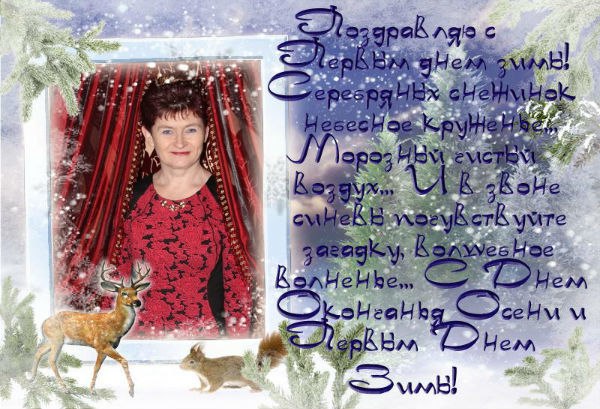 Поздравляю с
Первым днем зимы!
Серебряных снежинок
небесное круженье...
Морозный чистый
воздух... И в звоне
синевы почувствуйте
загадку, волшебное
волненье... С Днем
Окончанья Осени и
Первым Днем
Зимы!